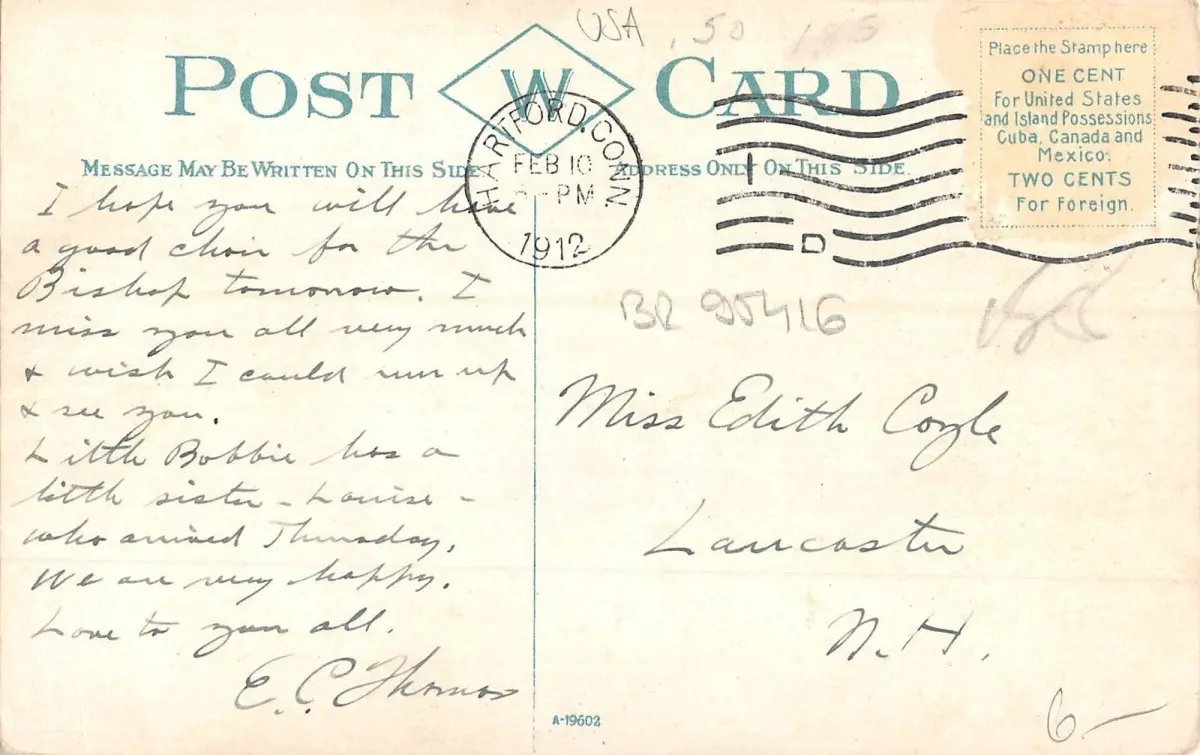 USA .50 185
POST W CARD
MESSAGE MAY BE WRITTEN ON THIS SIDE
ADDRESS ONLY ON THIS SIDE.
HARTFORD, CONN.
FEB 10
PM
1912
D
Place the Stamp here
ONE CENT
For United States
and Island Possessions
Cuba, Canada and
Mexico.
TWO CENTS
For Foreign.
I hope you will have
a good choir for the
Bishop tomorrow. I
miss you all very much
& wish I could run up
& see you.
Little Bobbie has a
little sister - Louise -
who arrived Thursday.
We are very happy.
Love to you all.
E. C. Thomas
BR 95416
Miss Edith Coyle
Lancaster
N. H.
6-
A-19602